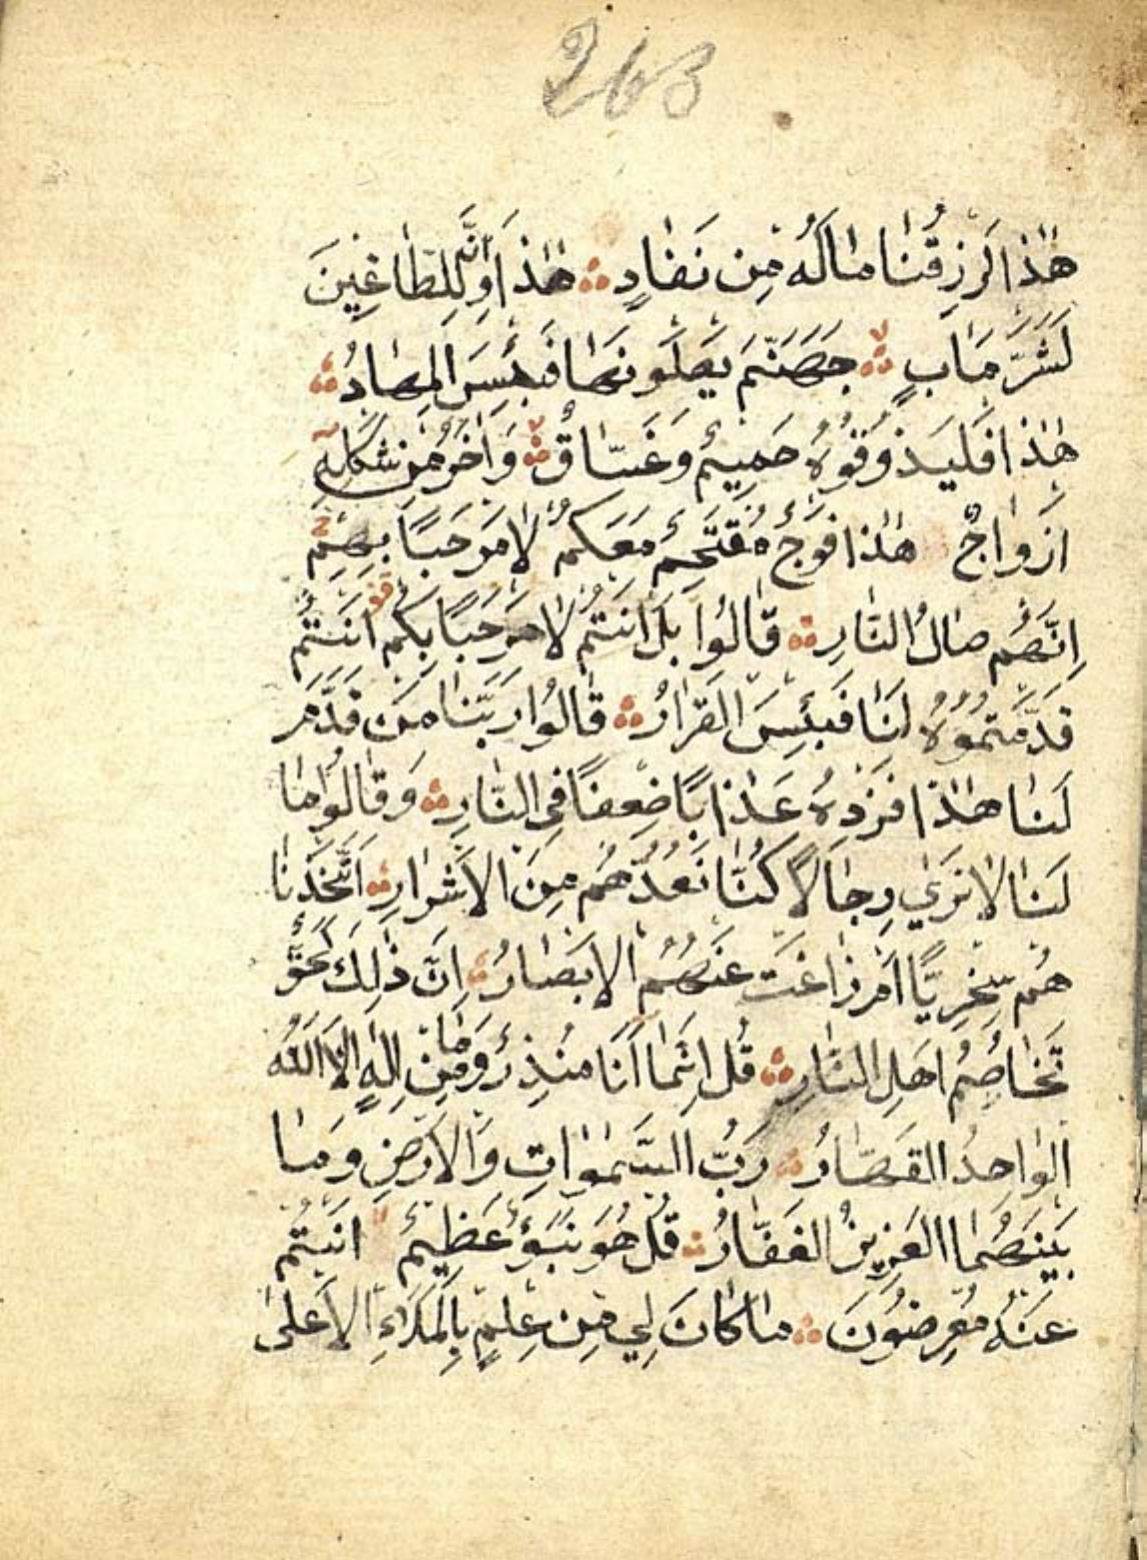 263
هٰذا لَرِزقُنٰا مٰا لَهُ مِن نَفٰادٍ هٰذٰا وَاِنَّ لِلطّٰاغِينَ
لَشَرَّ مَاٰبٍ جَهَنَّمَ يَصلَونَهٰا فَبِئسَ المِهٰادُ
هٰذا فَليَذوُقوُهُ حَمِيمٌ وَغَسّٰاقٌ وَاٰخَرُ مِن شَكلِهِ
اَزواجٌ هٰذا فَوجٌ مُقتَحِمٌ مَعَكُم لٰا مَرحَبًا بِهِم
اِنَّهُم صٰالُ النّٰارِ قٰالُوا بَل اَنتُم لٰا مَرحَبًا بِكُم اَنتُم
قَدَّمتُموُهُ لَنٰا فَبِئسَ القَرٰارُ قٰالُوا رَبَّنٰا مَن قَدَّمَ
لَنٰا هٰذا فَزِدهُ عَذٰابًا ضِعفًا فِي النّٰارِ وَقٰالُوا مٰا
لَنٰا لٰا نَرٰي رِجٰالًا كُنّٰا نَعُدُّهُم مِنَ الاَشرٰارِ اَتَّخَذنٰا
هُم سِخرِيًّا اَم زٰاغَت عَنهُمُ الاَبصٰارُ اِنَّ ذٰلِكَ لَحَقٌّ
تَخٰاصُمُ اَهلِ النّٰارِ قُل اِنَّمٰا اَنَا مُنذِرٌ وَمٰا مِن اِلٰهٍ اِلَّا اللّٰهُ
الوٰاحِدُ القَهّٰارُ رَبُّ السَّمٰوٰاتِ وَالاَرضِ وَمٰا
بَينَهُمٰا العَزِيزُ الغَفّٰارُ قُل هُوَ نَبَؤٌ عَظِيمٌ اَنتُم
عَنهُ مُعرِضُونَ مٰا كٰانَ لِي مِن عِلمٍ بِالمَلَاءِ الاَعلىٰ